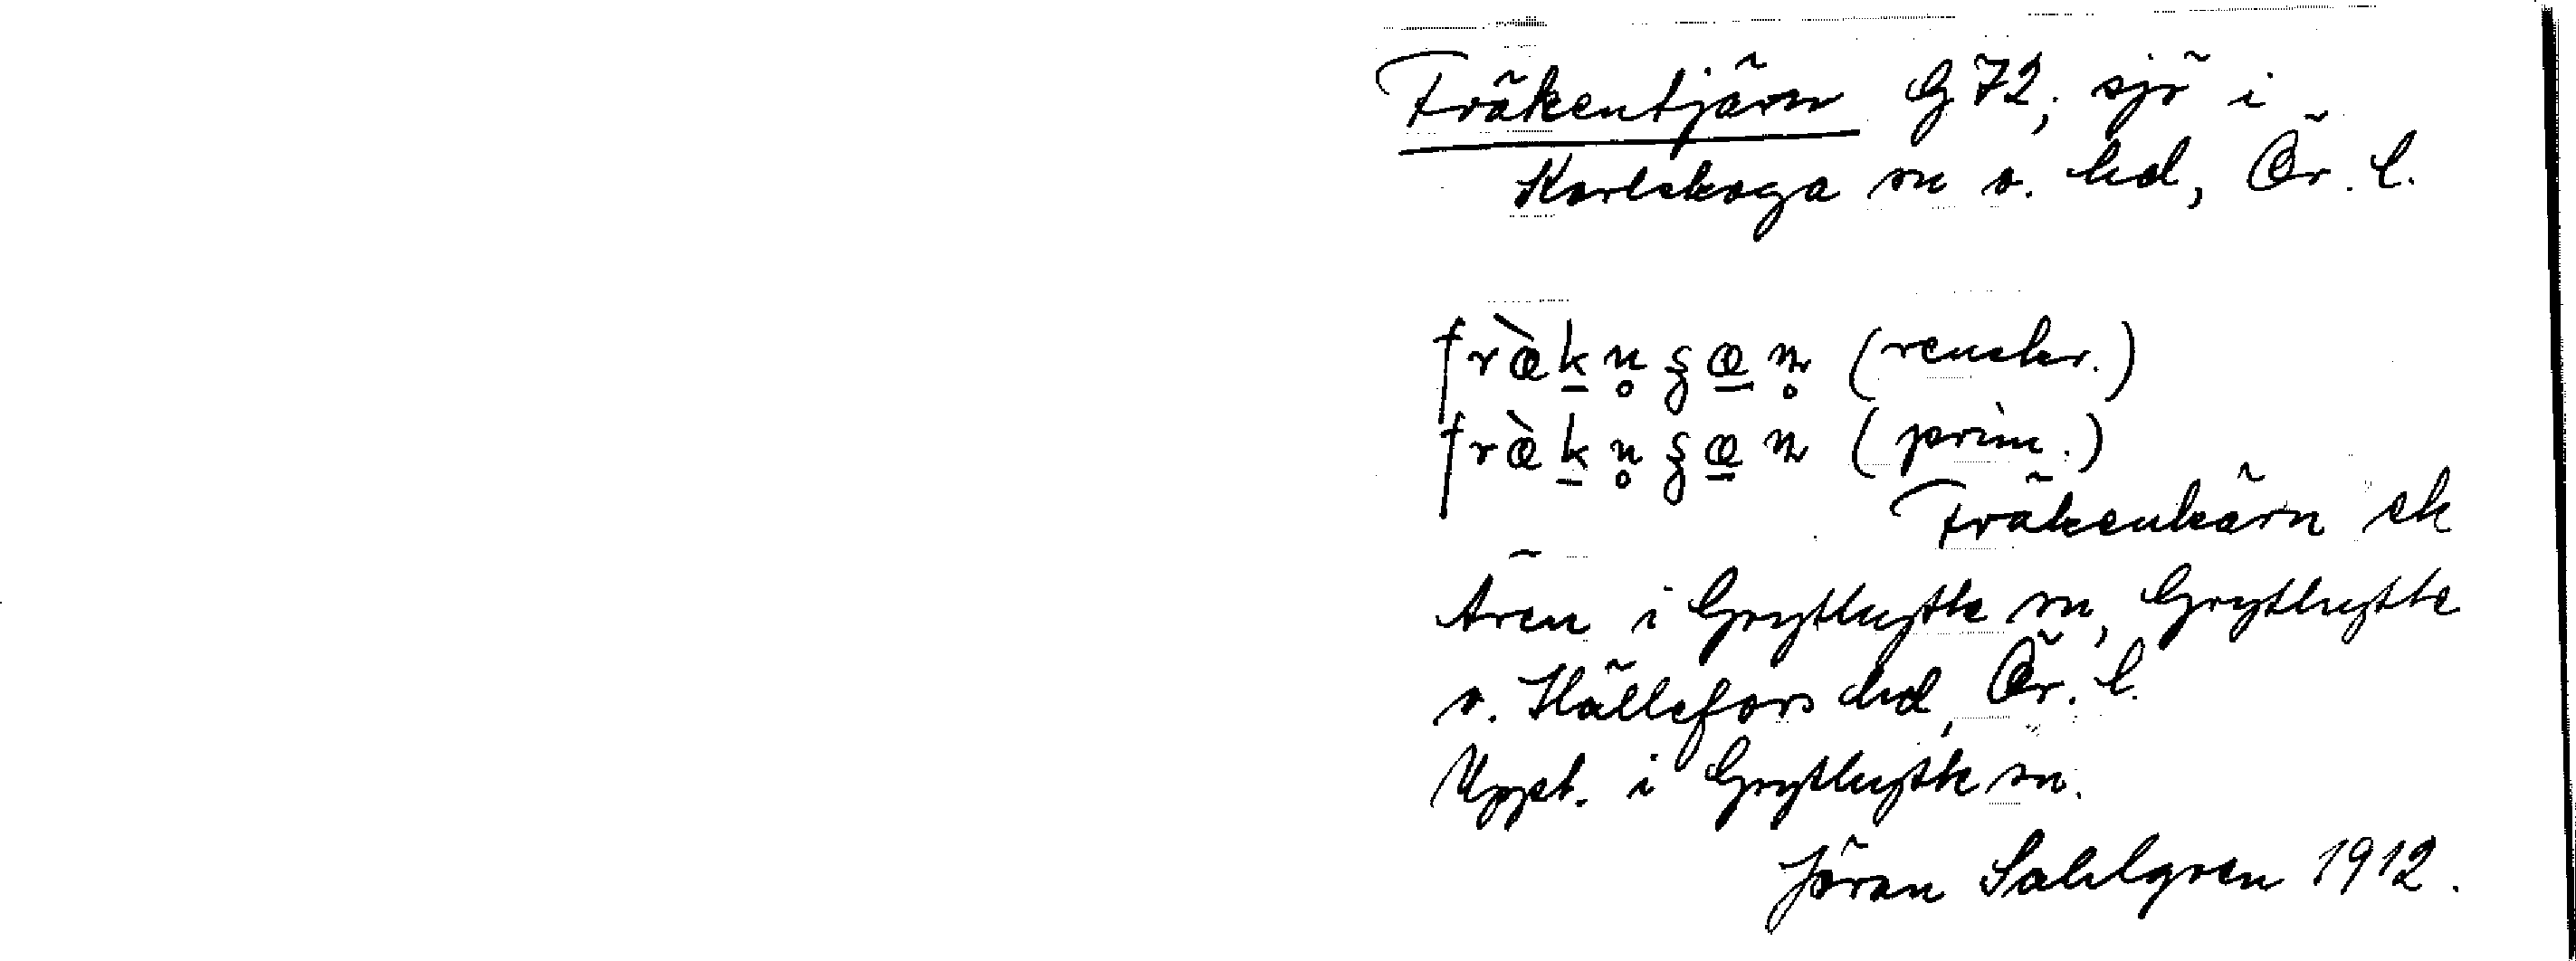 Fräkentjärn G72; sjö i
Karlskoga sn o. hd, Ör. l.
fræ̀k̠n̥ʂæ̠n̥ (renskr.)
fræ̀k̠n̥ʂæ̠n (prim.)
Fräkenkärn ek
Åren i Grythytte sn, Grythytte
o. Hällefors hd, Ör. l.
Uppt. i Grythytte sn.
Jöran Sahlgren 1912.